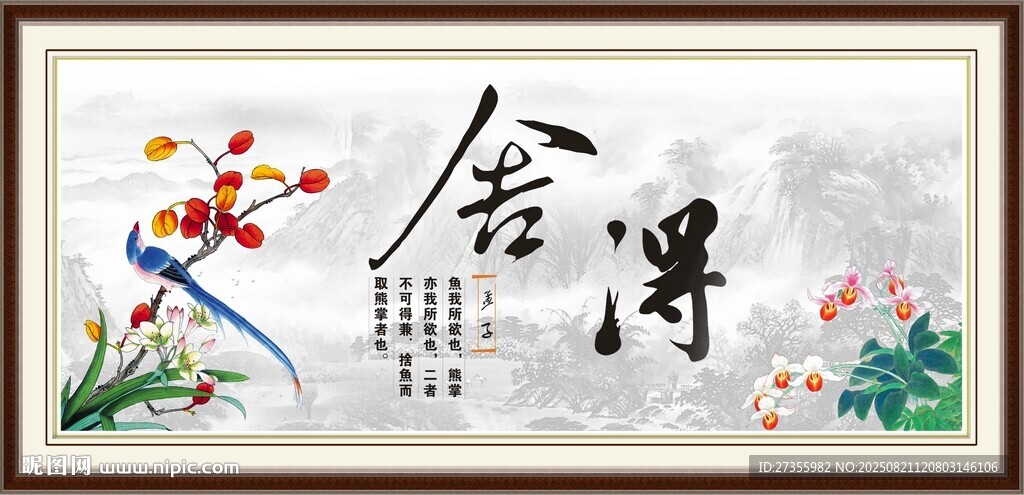 舍得
孟子
魚我所欲也，熊掌
亦我所欲也，二者
不可得兼．捨魚而
取熊掌者也。
昵图网 www.nipic.com
ID:27355982 NO:20250821120803146106